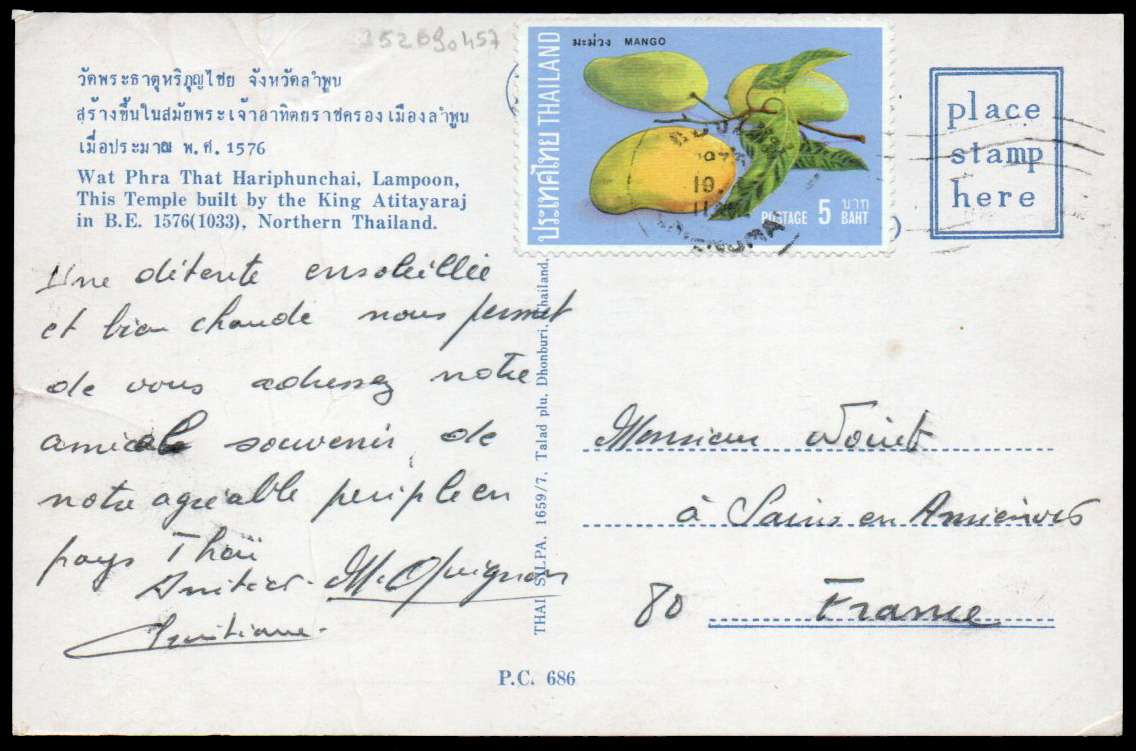 352690457
วัดพระธาตุหริภุญไชย จังหวัดลำพูน
สร้างขึ้นในสมัยพระเจ้าอาทิตยราชครองเมืองลำพูน
เมื่อประมาณ พ.ศ. 1576
Wat Phra That Hariphunchai, Lampoon,
This Temple built by the King Atitayaraj
in B.E. 1576(1033), Northern Thailand.
ประเทศไทย THAILAND
มะม่วง MANGO
POSTAGE 5 บาท BAHT
place
stamp
here
Une détente ensoleillée
et bien chaude nous permet
de vous adressez notre
amical souvenir de
notre agréable periple en
pays Thaï
Amitiés. M. Quignon
Christiane.
THAI SILPA, 1659/7, Talad plu, Dhonburi, Thailand.
Monsieur
à Sains en Amienois
80 France
P.C. 686